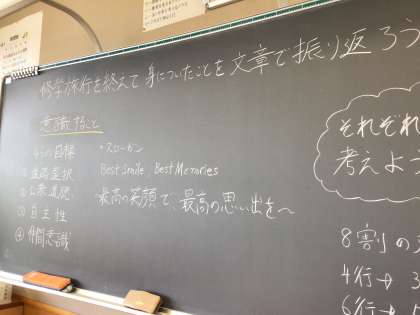 修学旅行を終えて身についたことを文章で振り返ろう
意識すること
4つの目標
・スローガン
Best Smile, Best Memories
最高の笑顔で、最高の思い出を〜
③自主性
④仲間意識
それぞれ
考えよ
8割の
4行→3
6行→